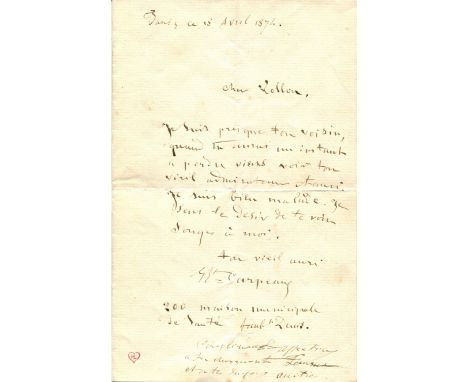 Paris, ce 18 Avril 1874.
cher
Je suis presque ton voisin,
quand tu auras un instant
a perdre viens voir ton
vieil admirateur et ami
Je suis bien malade. Je
sens le desir de te voir
Songes à moi.
ton vieil ami
Bte Carpeaux
200 maison municipale
de Santé faubg St Denis.